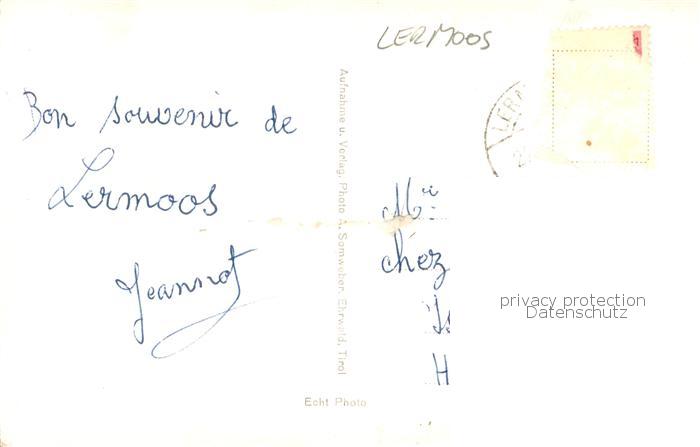 LERMOOS
Bon souvenir de
Lermoos
Jeannot
Aufnahme u. Verlag, Photo A. Somweber, Ehrwald, Tirol
chez
H
privacy protection
Datenschutz
Echt Photo